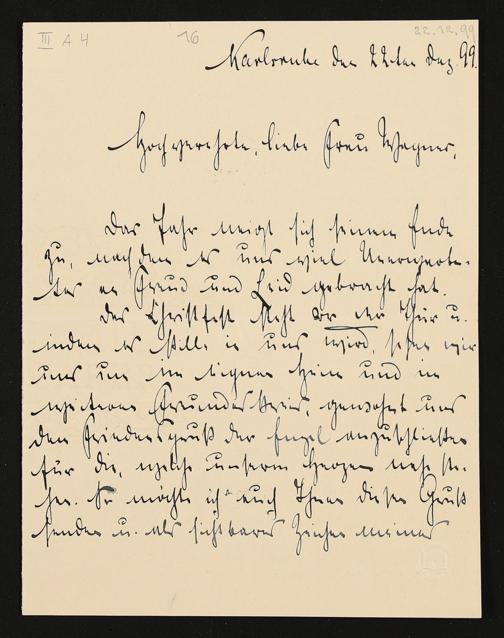 III A 4 16 22.12.99
Karlsruhe den 22ten Dez 99.
Hochverehrte, liebe Frau Wagner,
Das Jahr neigt sich seinem Ende
zu, nachdem es uns viel Unerwarte-
tes an Freud und Leid gebracht hat.
Das Christfest steht vor der Thür u.
indem es stille in uns wird, sehen wir
uns um im eignen Heim und im
weiteren Freundeskreis, gewohnt uns
dem Friedensgruß der Engel anzuschließen
für die, welche unserm Herzen nahe ste-
hen. So möchte ich auch Ihnen diesen Gruß
senden u. als sichtbares Zeichen meines